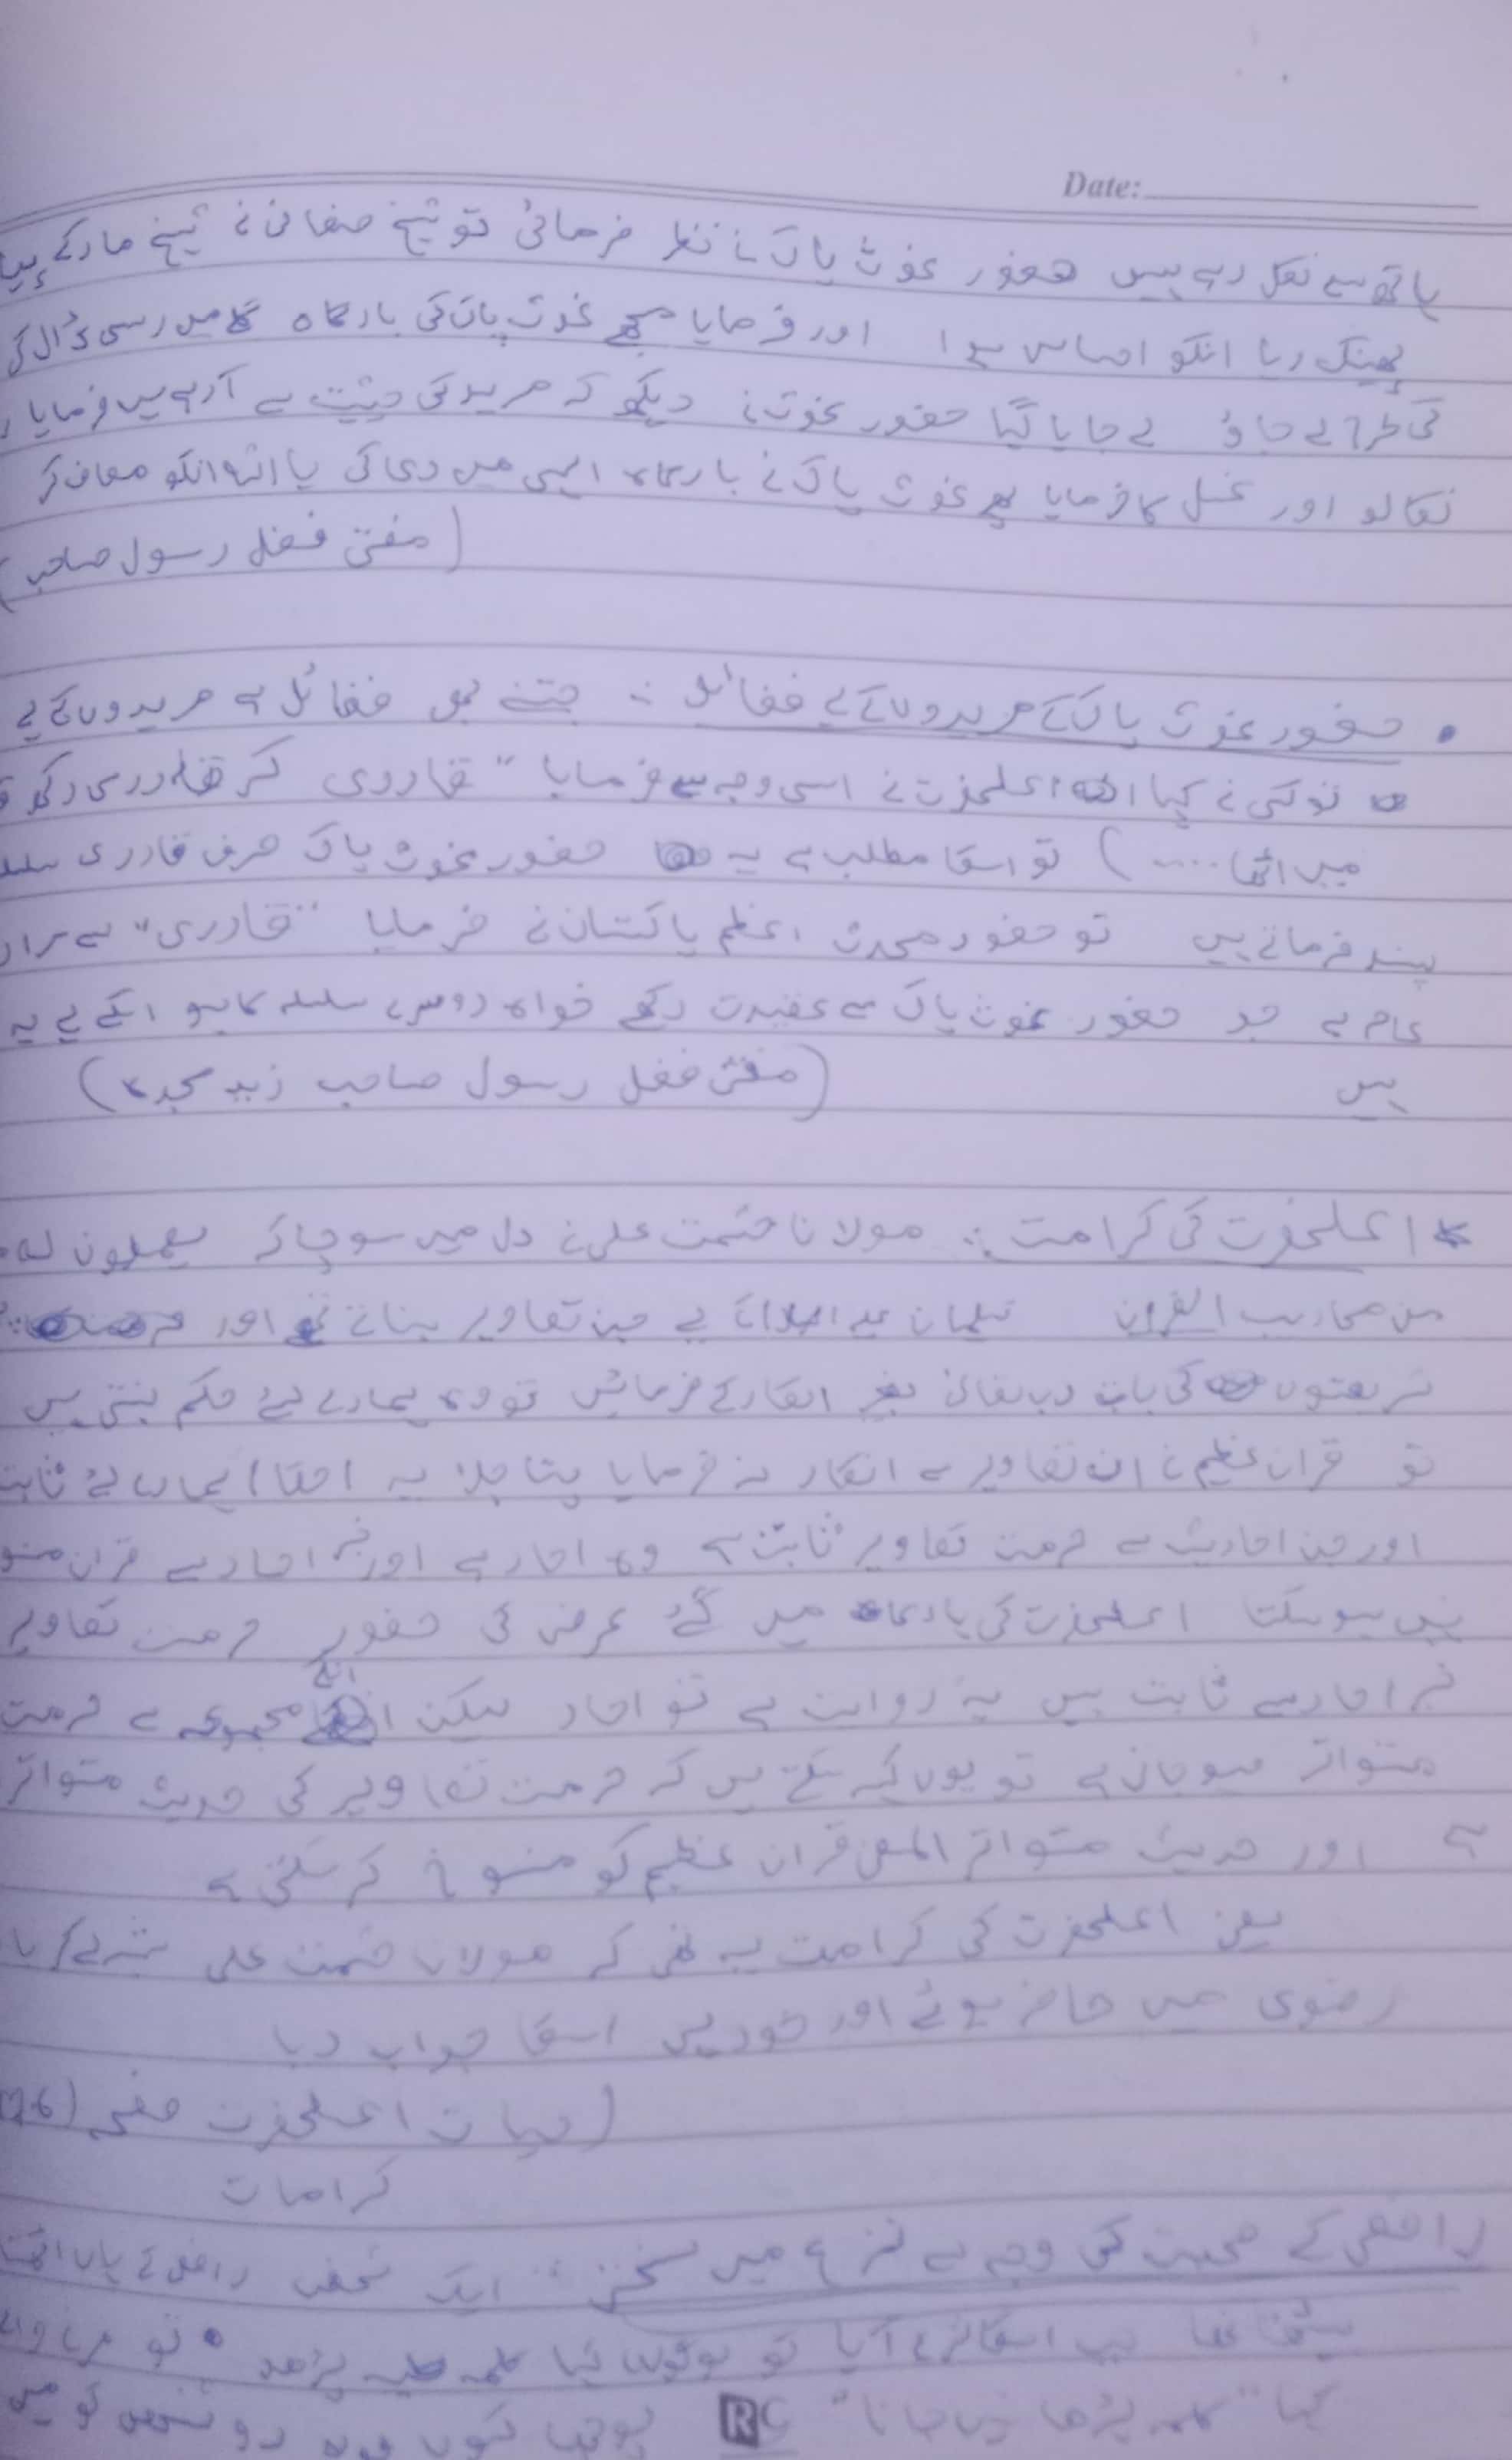 Date:
ہاتھ سے نکل رہے ہیں حضور غوث پاک نے نظر فرمائی تو شیخ صنعانی نے شیخ مار کے
پھینک دیا انکو احساس ہوا اور فرمایا مجھے غوث پاک کی بارگاہ میں رسی ڈال کر
کی طرح لے جاؤ لے جایا گیا حضور غوث نے دیکھ کہ مرید کی حیثیت سے آرہے ہیں فرمایا
نکالو اور غسل کا فرمایا پھر غوث پاک نے بارگاہ الہی میں دعا کی یا اللہ انکو معاف کر
(مفتی فضل رسول صاحب)
• حضور غوث پاک کے مریدوں کے لیے فضائل :- جتنے بھی فضائل ہے مریدوں کے لیے
تو کسی نے کہا اعلحضرت نے اسی وجہ سے فرمایا " قادری کر قادری رکھ
میں اٹھا ....) تو اسکا مطلب ہے یہ حضور غوث پاک صرف قادری
پسند فرماتے ہیں تو حضور محدث اعظم پاکستان نے فرمایا "قادری" سے مراد
عام ہے جو حضور غوث پاک سے عقیدت رکھے خواہ دوسرے سلسلہ کا ہو انکے لیے یہ
ہیں (مفتی فضل رسول صاحب زید مجدہ)
* اعلحضرت کی کرامت :- مولانا حشمت علی نے دل میں سوچا کہ یعملون لہ
من محاریب القران سلیمان علیہ کے لیے جن تصاویر بناتے تھے اور
شریعتوں کی بات رب تعالی بغیر انکار کے فرمائیں تو وہ ہمارے لیے حکم بنتی ہیں
تو قران عظیم نے ان تصاویر سے انکار نہ فرمایا پتا چلا یہ ہمارے لئے ثابت
اور جن احادیث سے حرمت تصاویر ثابت ہے وہ احاد ہے اور خبر احاد سے قران منسو
نہیں ہو سکتا اعلحضرت کی بارگاہ میں گئے عرض کی حضور حرمت تصاویر
خبر احاد سے ثابت ہیں یہ روایت ہے تو احاد لیکن انکے مجموعہ سے حرمت
متواتر ہو جاتی ہے تو یوں کہہ سکتے ہیں کہ حرمت تصاویر کی حدیث متواتر
ہے اور حدیث متواتر المعنی قران عظیم کو منسوخ کر سکتی ہے
یعنی اعلحضرت کی کرامت یہ تھی کہ مولانا حشمت علی
رضوی میں حاضر ہوئے اور خود ہی اسکا جواب دیا
(حیات اعلحضرت صفحہ
کرامات
رافضی کے صحبت کی وجہ سے نزع میں :- ایک شخص رافضی کے پاس اٹھتا
بیٹھتا تھا جب اسکا نزع آیا تو لوگوں کہا کلمہ طیبہ پڑھو تو
کہا "کلمہ پڑھا نہیں جاتا" پوچھا کیوں وہ دو شخص